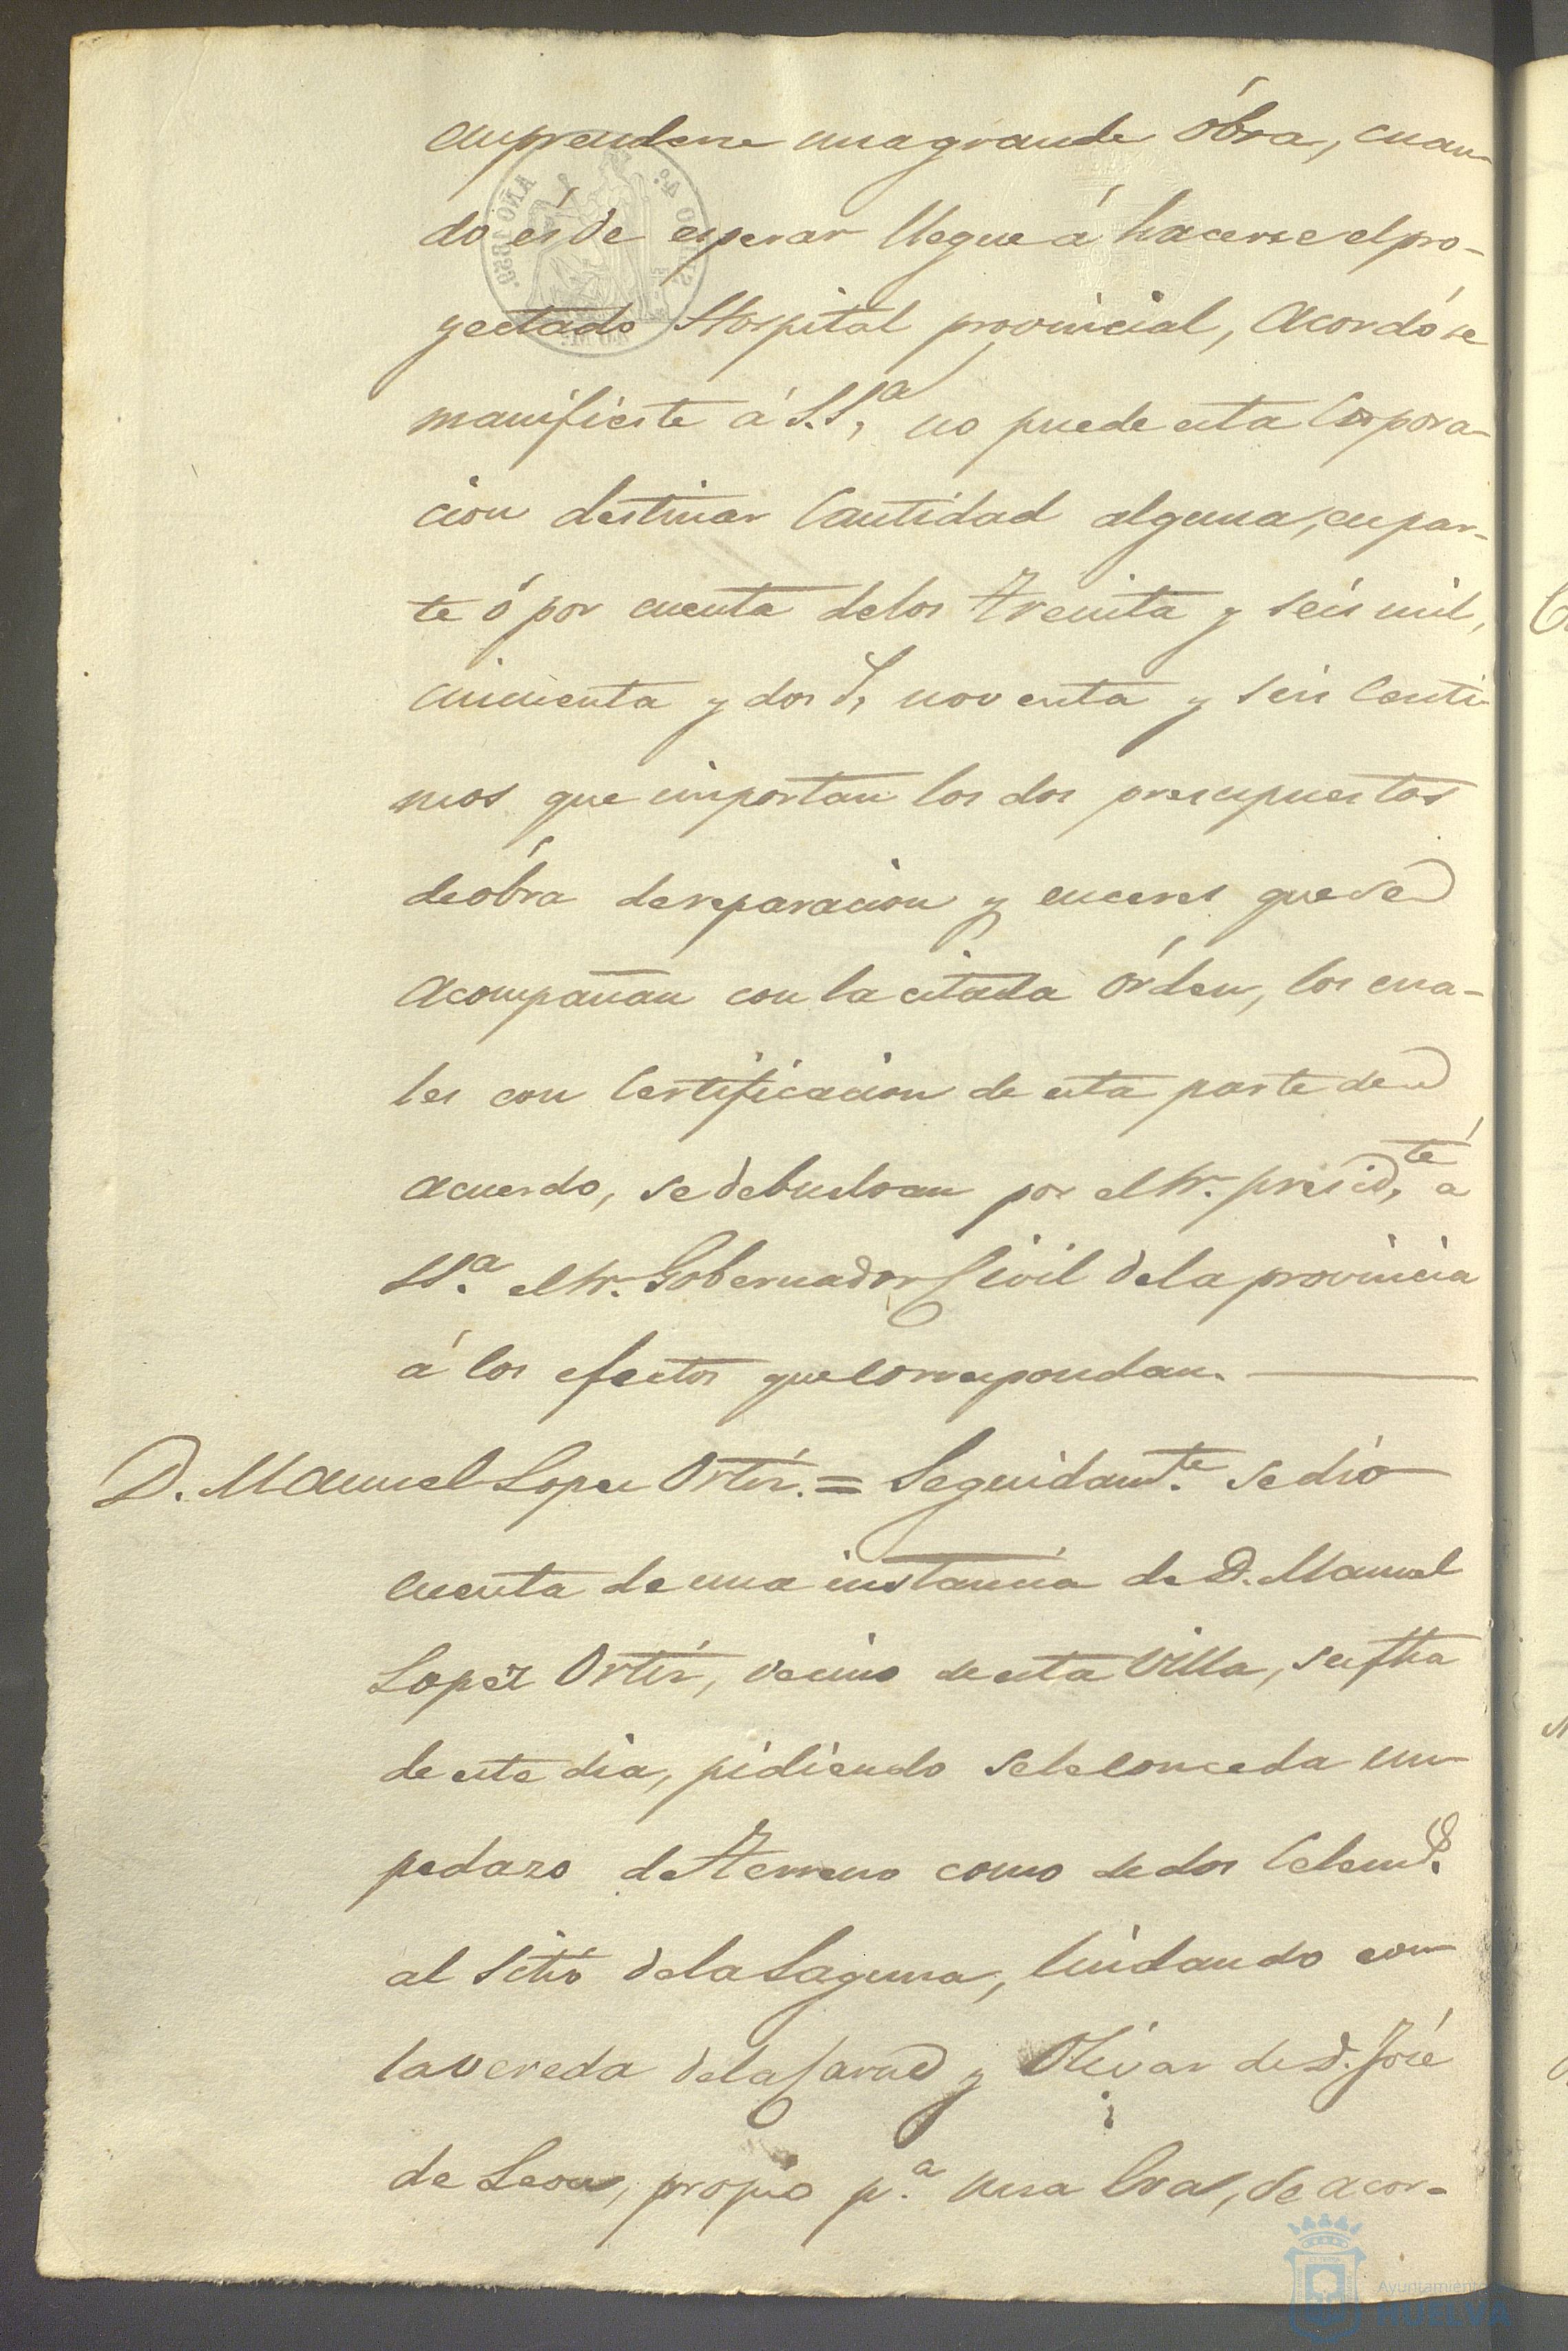 emprenderse una grande óbra, cuan-
do és de esperar llegue á hacerse el pro-
yectado Hospital provincial, Acordó se
manifieste á S.Sª, no puede esta Corpora-
cion destinar Cantidad alguna, en par-
te ó por cuenta de los treinta y seis mil,
cincuenta y dos r,, noventa y seis Centi-
mos que importan los dos presupuestos
de óbra de reparacion y enceres que se
acompañan con la citada órden, los cua-
les con Certificacion de esta parte de
acuerdo, se debuelvan por el Sr. presidte á
SSª. el Sr. Gobernador Civil de la provincia
á los efectos que correspondan.
D. Manuel Lopez Ortíz. = Seguidamte. se dió
cuenta de una instancia de D. Manuel
Lopez Ortíz, vecino de esta Villa, su fha
de este dia, pidiendo se le conceda un
pedazo de terreno como de dos Celems.
al sitio de la Laguna, lindando con
la vereda de la y Olivar de D. José
de Leon, propio pª. una Era, se acor-
AÑO 1858.
SELLO 4º.
Ayuntamiento
HUELVA